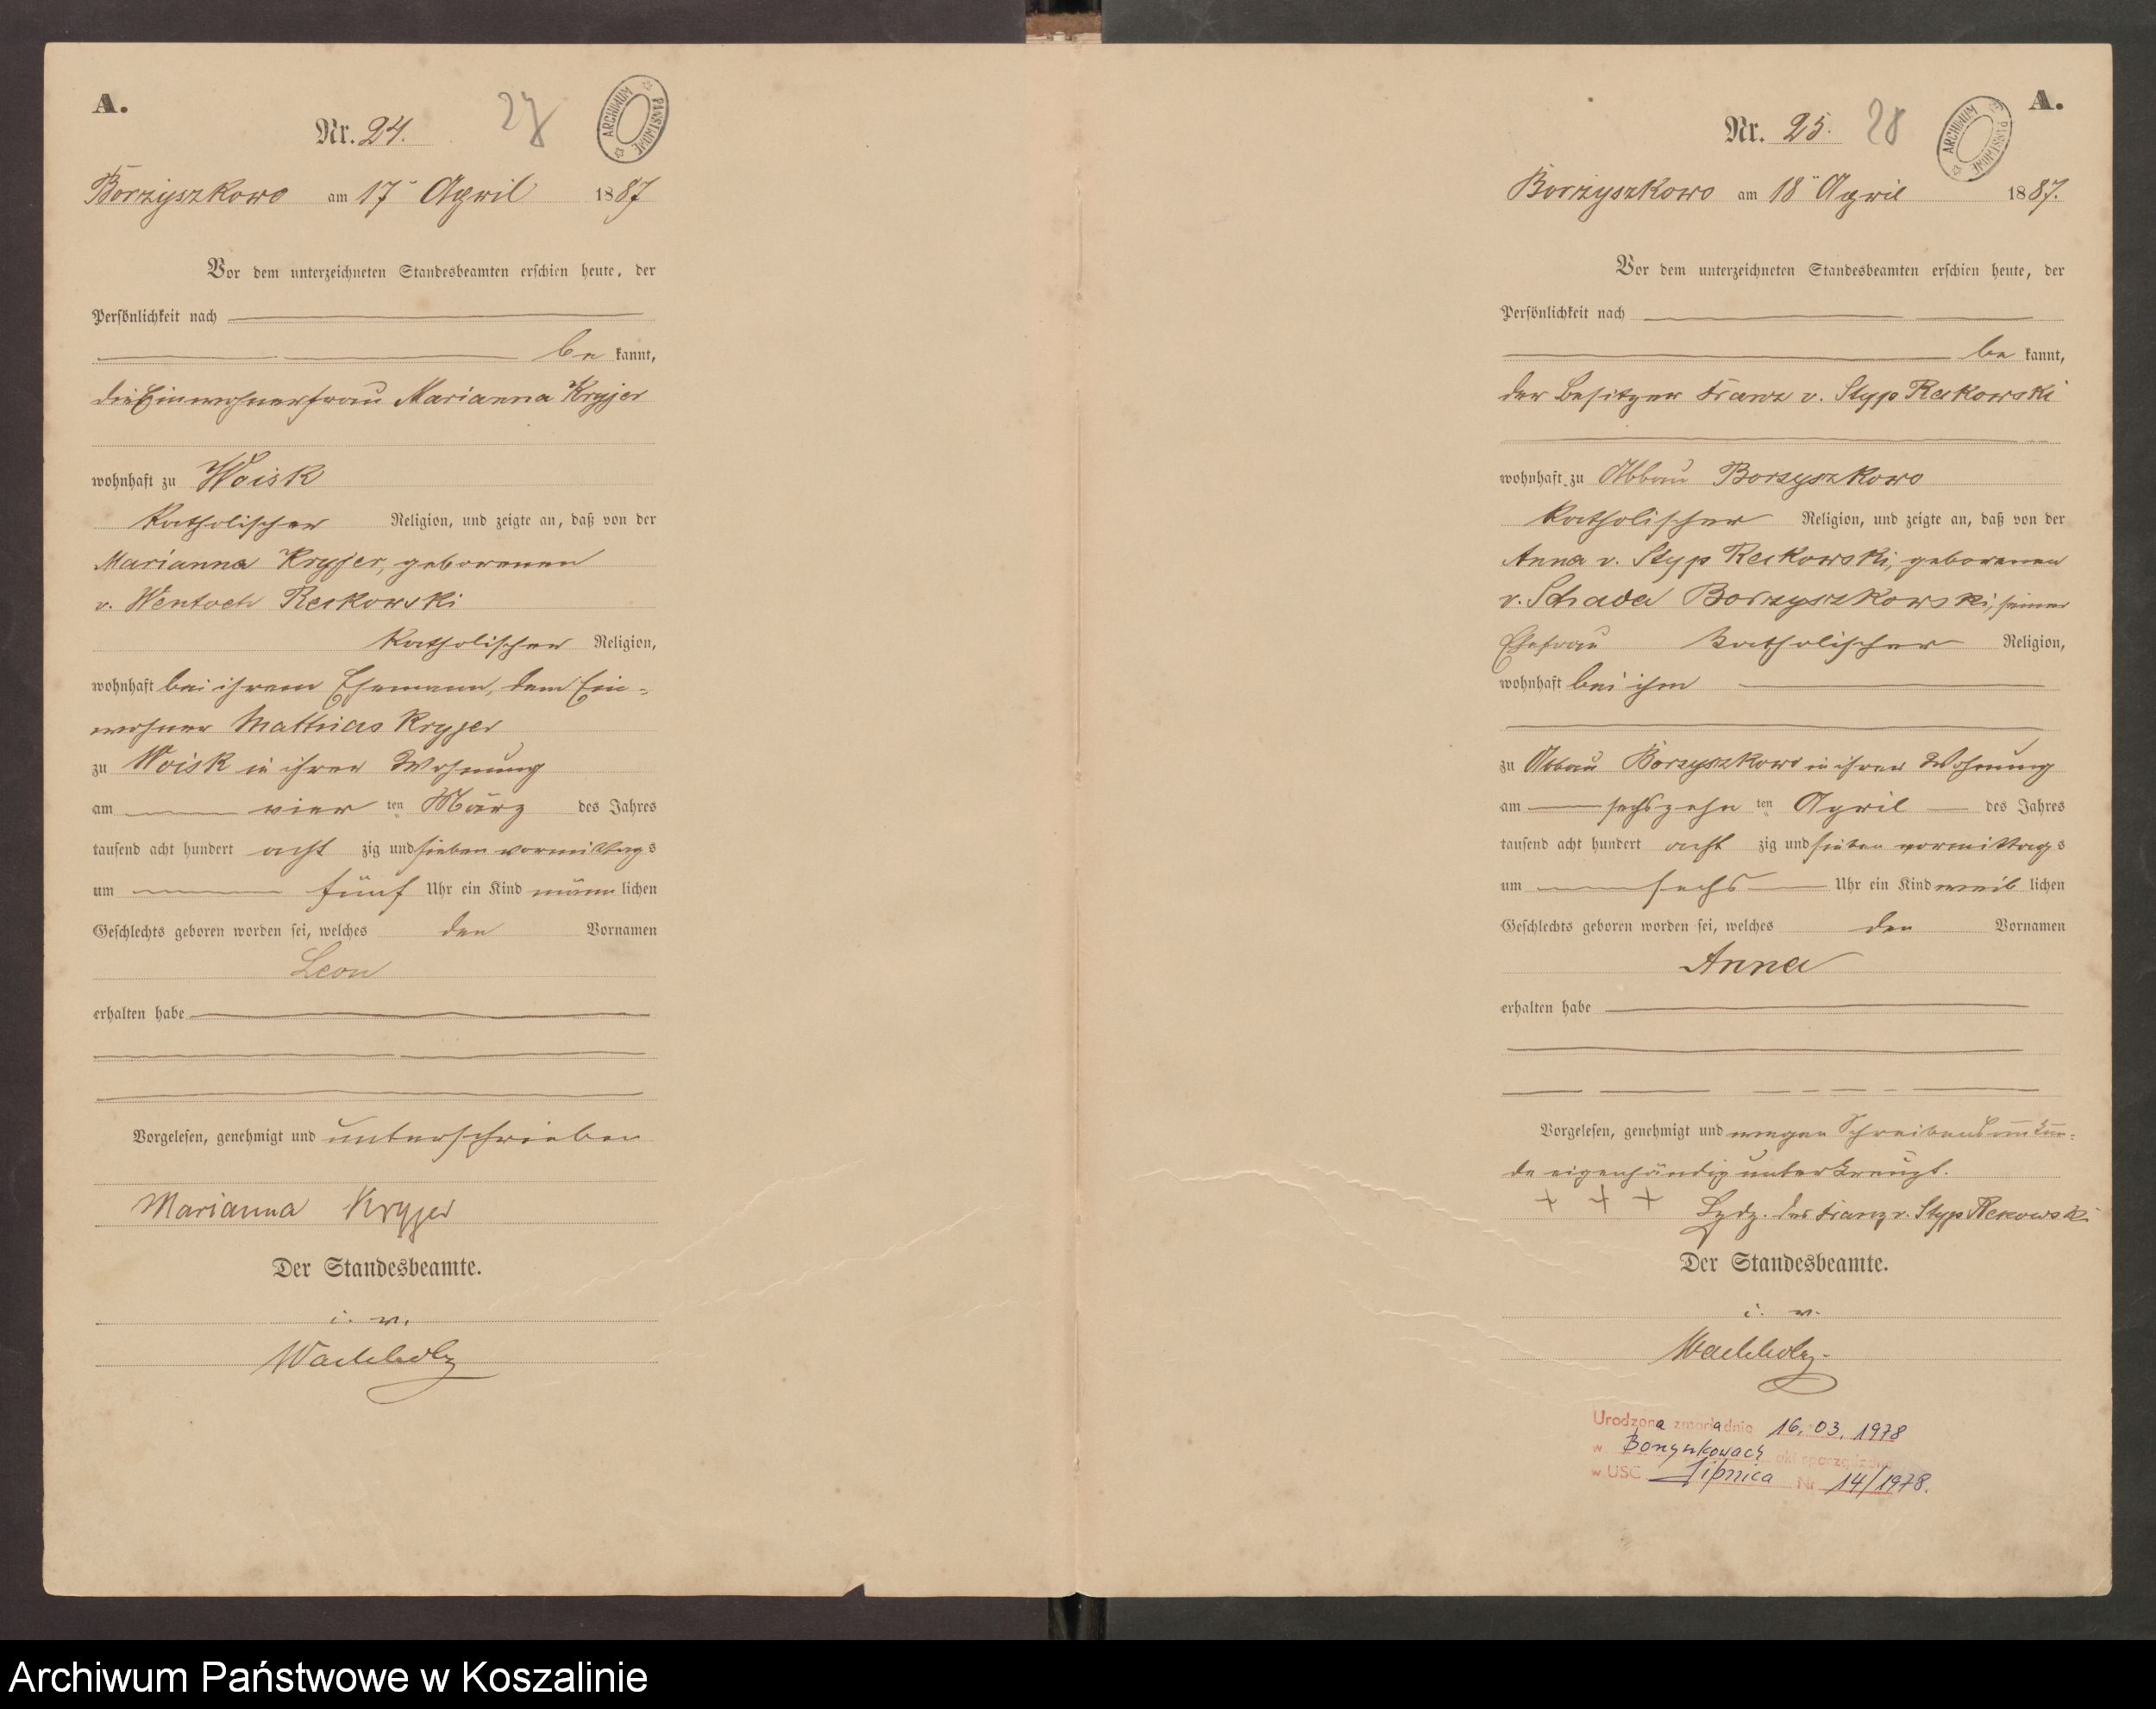 A.
Nr. 24.
27
ARCHIWUM PAŃSTWOWE
Borzyszkowo am 17ⁿ April 1887
Vor dem unterzeichneten Standesbeamten erschien heute, der
Persönlichkeit nach
be kannt,
die Einwohnerfrau Marianna Kryjer
wohnhaft zu Woisk
katholischer Religion, und zeigte an, daß von der
Marianna Kryjer, geborenen
v. Wentoch Reckowski
katholischer Religion,
wohnhaft bei ihrem Ehemann, dem Ein-
wohner Mathias Kryjer
zu Woisk in ihrer Wohnung
am vier ten März des Jahres
tausend acht hundert acht zig und sieben vormittags
um fünf Uhr ein Kind männ lichen
Geschlechts geboren worden sei, welches den Vornamen
Leon
erhalten habe
Vorgelesen, genehmigt und unterschrieben
Marianna Kryjer
Der Standesbeamte.
i. v.
Wachholz
A.
Nr. 25.
28
ARCHIWUM PAŃSTWOWE
Borzyszkowo am 18ⁿ April 1887.
Vor dem unterzeichneten Standesbeamten erschien heute, der
Persönlichkeit nach
be kannt,
der Besitzer Franz v. Styp Reckowski
wohnhaft zu Abbau Borzyszkowo
katholischer Religion, und zeigte an, daß von der
Anna v. Styp Reckowski, geborenen
v. Schada Borzyszkowski, seiner
Ehefrau katholischer Religion,
wohnhaft bei ihm
zu Abbau Borzyszkowo in ihrer Wohnung
am sechszehn ten April des Jahres
tausend acht hundert acht zig und sieben vormittags
um sechs Uhr ein Kind weib lichen
Geschlechts geboren worden sei, welches den Vornamen
Anna
erhalten habe
Vorgelesen, genehmigt und wegen Schreibensunkun-
de eigenhändig unterkreuzt.
+ + + Hdz. des Franz v. Styp Rekowski
Der Standesbeamte.
i. v.
Wachholz
Urodzona zmarła dnia 16.03.1978
w Borzyszkowach akt sporządzono
w USC Lipnica Nr 14/1978.
Archiwum Państwowe w Koszalinie